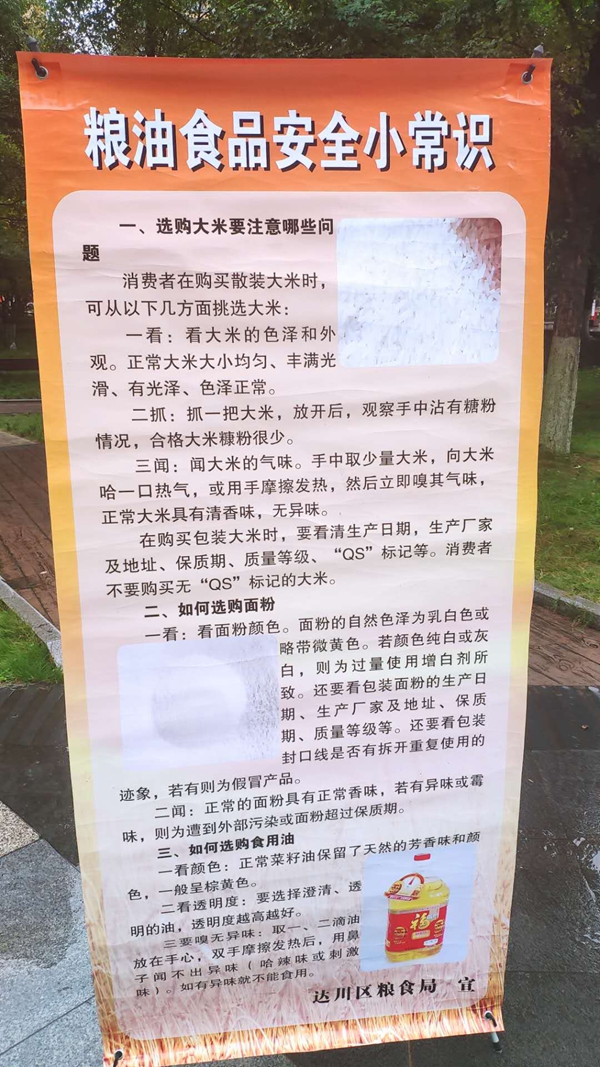 粮油食品安全小常识
一、选购大米要注意哪些问
题
消费者在购买散装大米时，
可从以下几方面挑选大米：
一看：看大米的色泽和外
观。正常大米大小均匀、丰满光
滑、有光泽、色泽正常。
二抓：抓一把大米，放开后，观察手中沾有糖粉
情况，合格大米糠粉很少。
三闻：闻大米的气味。手中取少量大米，向大米
哈一口热气，或用手摩擦发热，然后立即嗅其气味，
正常大米具有清香味，无异味。
在购买包装大米时，要看清生产日期，生产厂家
及地址、保质期、质量等级、“QS”标记等。消费者
不要购买无“QS”标记的大米。
二、如何选购面粉
一看：看面粉颜色。面粉的自然色泽为乳白色或
略带微黄色。若颜色纯白或灰
白，则为过量使用增白剂所
致。还要看包装面粉的生产日
期、生产厂家及地址、保质
期、质量等级等。还要看包装
封口线是否有拆开重复使用的
迹象，若有则为假冒产品。
二闻：正常的面粉具有正常香味，若有异味或霉
味，则为遭到外部污染或面粉超过保质期。
三、如何选购食用油
一看颜色：正常菜籽油保留了天然的芳香味和颜
色，一般呈棕黄色。
二看透明度：要选择澄清、透
明的油，透明度越高越好。
三要嗅无异味：取一、二滴油
放在手心，双手摩擦发热后，用鼻
子闻不出异味（哈辣味或刺激
味）。如有异味就不能食用。
福
达川区粮食局 宣